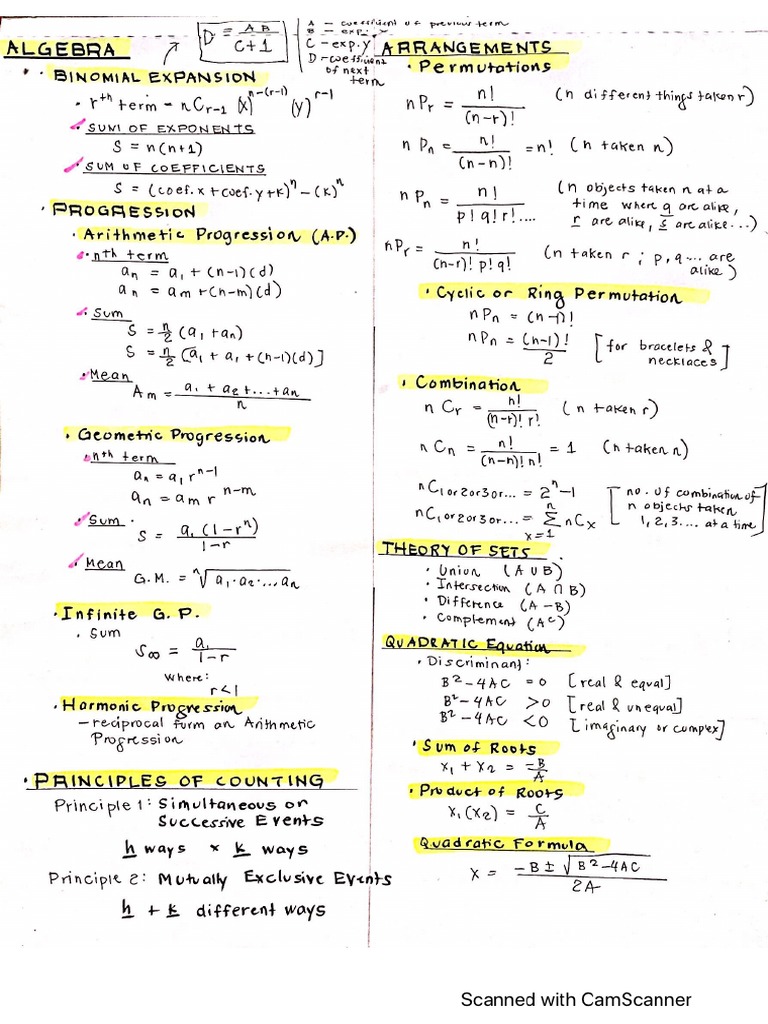 ALGEBRA
D = AB / C+1
A - coefficient of previous term
B - exp. x
C - exp. y
D - coefficient
of next
term
• BINOMIAL EXPANSION
• rᵗʰ term - nCr-1 (x)ⁿ⁻⁽ʳ⁻¹⁾ (y)ʳ⁻¹
• SUM OF EXPONENTS
S = n(n+1)
• SUM OF COEFFICIENTS
S = (coef. x + coef. y + k)ⁿ - (k)ⁿ
• PROGRESSION
• Arithmetic Progression (A.P.)
• nth term
aₙ = a₁ + (n-1)(d)
aₙ = aₘ + (n-m)(d)
• Sum
S = n/2 (a₁ + aₙ)
S = n/2 [a₁ + a₁ + (n-1)(d)]
• Mean
Aₘ = a₁ + a₂ + ... + aₙ / n
• Geometric Progression
• nᵗʰ term
aₙ = a₁ rⁿ⁻¹
aₙ = aₘ rⁿ⁻ᵐ
• Sum
S = a₁ (1 - rⁿ) / 1 - r
• Mean
G.M. = ⁿ√a₁·a₂.... aₙ
• Infinite G. P.
• Sum
S∞ = a₁ / 1 - r
where:
r < 1
• Harmonic Progression
- reciprocal form an Arithmetic
Progression
• PRINCIPLES OF COUNTING
Principle 1: Simultaneous or
Successive Events
h ways × k ways
Principle 2: Mutually Exclusive Events
h + k different ways
ARRANGEMENTS
• Permutations
nPr = n! / (n-r)! (n different things taken r)
n Pn = n! / (n-n)! = n! (n taken n)
n Pn = n! / p! q! r!.... (n objects taken n at a
time where q are alike,
r are alike, s are alike...)
nPr = n! / (n-r)! p! q! (n taken r ; p, q... are
alike)
• Cyclic or Ring Permutation
nPn = (n-1)!
nPn = (n-1)! / 2 [for bracelets &
necklaces]
• Combination
n Cr = n! / (n-r)! r! (n taken r)
n Cn = n! / (n-n)! n! = 1 (n taken n)
nC1 or 2 or 3 or... = 2ⁿ - 1 [no. of combination of
n objects taken
1, 2, 3.... at a time]
nC1 or 2 or 3 or... = Σ nCx
n
x=1
THEORY OF SETS
• Union (A ∪ B)
• Intersection (A ∩ B)
• Difference (A - B)
• Complement (Aᶜ)
QUADRATIC Equation
• Discriminant:
B² - 4AC = 0 [real & equal]
B² - 4AC > 0 [real & unequal]
B² - 4AC < 0 [imaginary or complex]
• Sum of Roots
x₁ + x₂ = -B / A
• Product of Roots
x₁(x₂) = C / A
Quadratic Formula
x = -B ± √B² - 4AC / 2A
Scanned with CamScanner